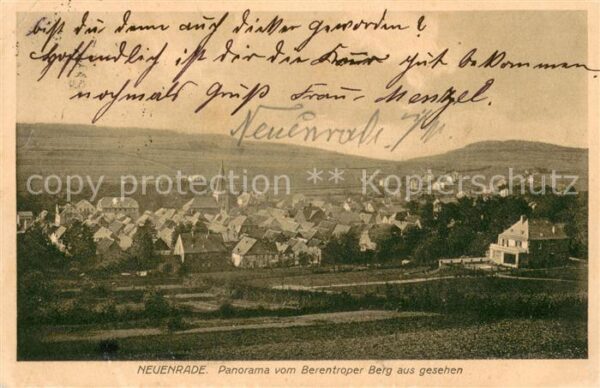 bist du denn auch dicker geworden?
hoffendlich ist dir die Kur gut bekommen
nochmals Gruß Frau Menzel.
Neuenrade
copy protection ** Kopierschutz
NEUENRADE. Panorama vom Berentroper Berg aus gesehen